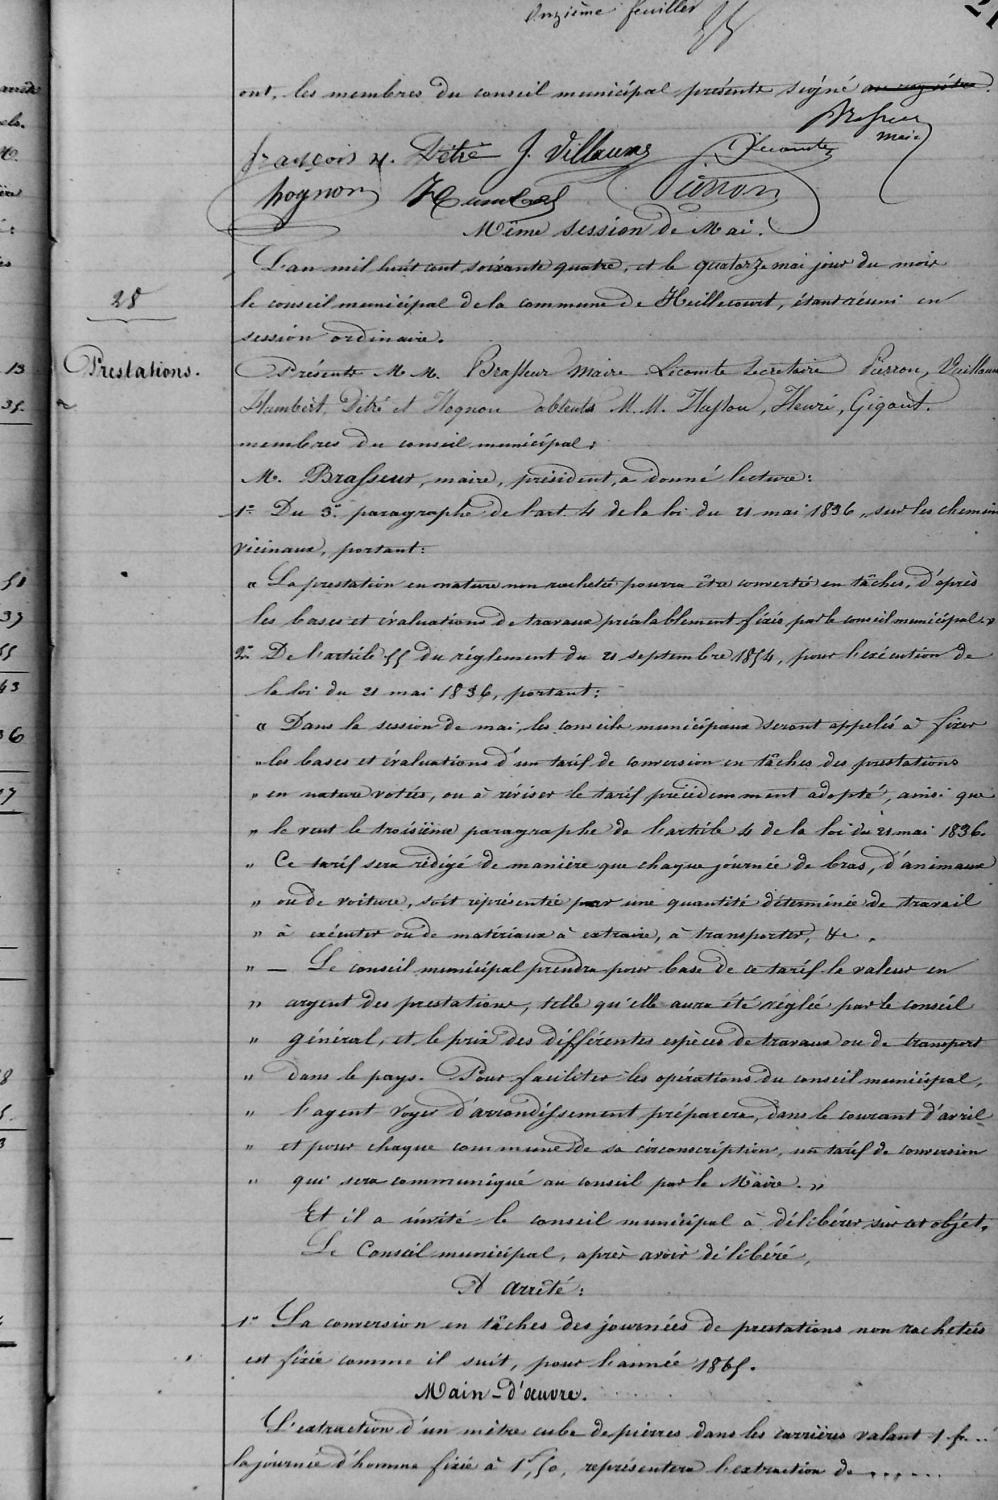 Onzième feuillet
21
ont, les membres du conseil municipal présents signé au registre.
Brasseur
maire
françois N. Détré J. Villaume Lecomte
hognon Humbert Pierron
Même session de Mai.
L'an mil huit cent soixante quatre, et le quatorze mai jour du mois
28
le conseil municipal de la commune de Heillecourt, étant réuni en
session ordinaire.
Prestations.
Présents M. M. Brasseur maire Lecomte secrétaire Pierron, Vuillaume
Humbert, Détré et Hognon absents M. M. Husson, Henri, Gigout.
membres du conseil municipal;
M. Brasseur, maire, président, a donné lecture:
1° Du 3e paragraphe de l'art. 4 de la loi du 21 mai 1836, sur les chemins
vicinaux, portant:
« La prestation en nature non rachetée pourra être convertie en tâches, d'après
les bases et évaluations de travaux préalablement fixés par le conseil municipal. »
2° De l'article 55 du réglement du 21 septembre 1854, pour l'exécution de
la loi du 21 mai 1836, portant:
« Dans la session de mai, les conseils municipaux seront appelés à fixer
» les bases et évaluations d'un tarif de conversion en tâches des prestations
» en nature votées, ou à réviser le tarif précédemment adopté, ainsi que
» le veut le troisième paragraphe de l'article 4 de la loi du 21 mai 1836.
» Ce tarif sera rédigé de manière que chaque journée de bras, d'animaux
» ou de voiture, soit représentée par une quantité déterminée de travail
» à exécuter ou de matériaux à extraire, à transporter, &c.
» — Le conseil municipal prendra pour base de ce tarif la valeur en
» argent des prestations, telle qu'elle aura été réglée par le conseil
» général, et le prix des différentes espèces de travaux ou de transport
» dans le pays. Pour faciliter les opérations du conseil municipal,
» l'agent voyer d'arrondissement préparera, dans le courant d'avril
» et pour chaque commune de sa circonscription, un tarif de conversion
» qui sera communiqué au conseil par le Maire. »
Et il a invité le conseil municipal à délibérer sur cet objet.
Le Conseil municipal, après avoir délibéré,
A arrêté:
1° La conversion en tâches des journées de prestations non rachetées
est fixée comme il suit, pour l'année 1865.
Main-d'œuvre.
L'extraction d'un mètre cube de pierres dans les carrières valant 1 fr ...
la journée d'homme fixée à 1f,50, représentera l'extraction de ......